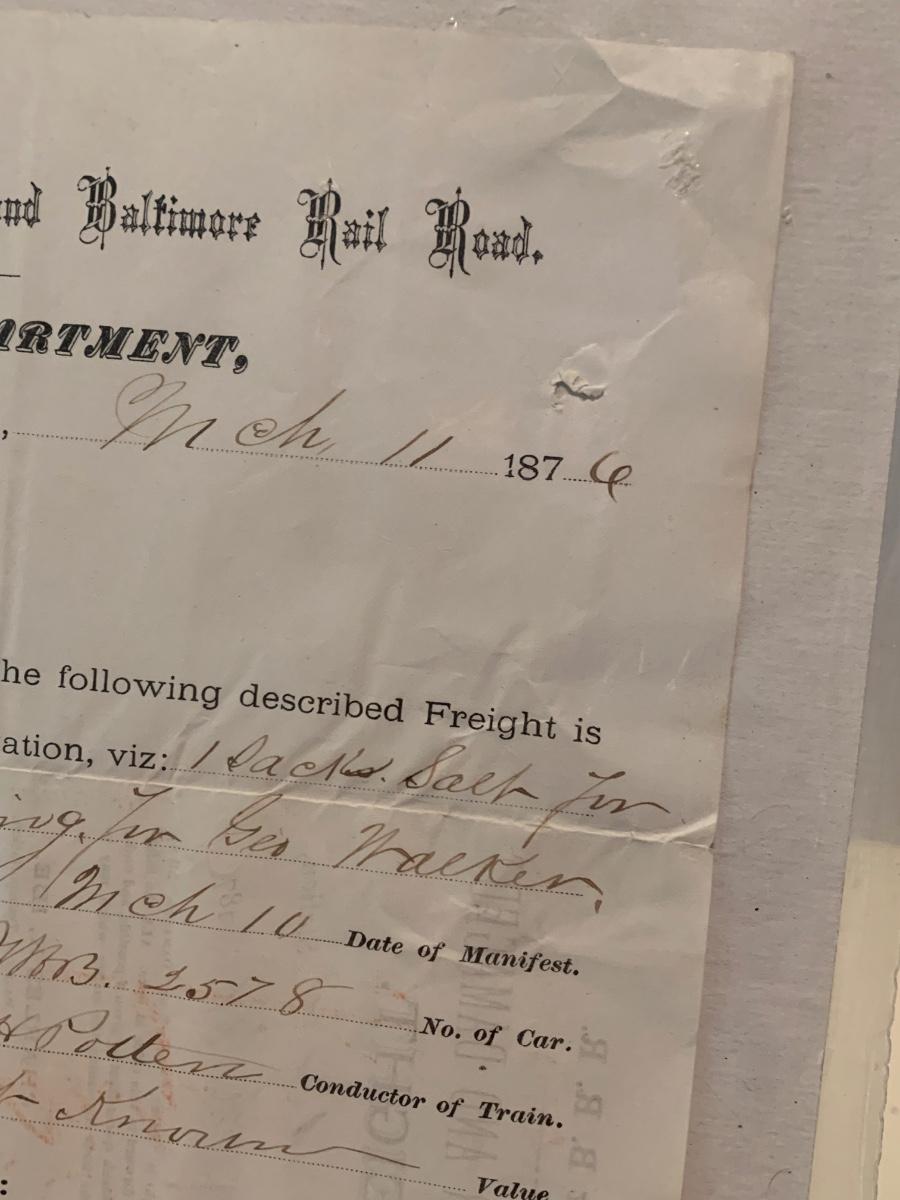 and Baltimore Rail Road.
ARTMENT,
, Mch, 11 1876
he following described Freight is
ation, viz: 1 Sack Salt for
ing, for Geo Walker,
Mch 10 Date of Manifest.
2578 No. of Car.
Conductor of Train.
Known Value
: